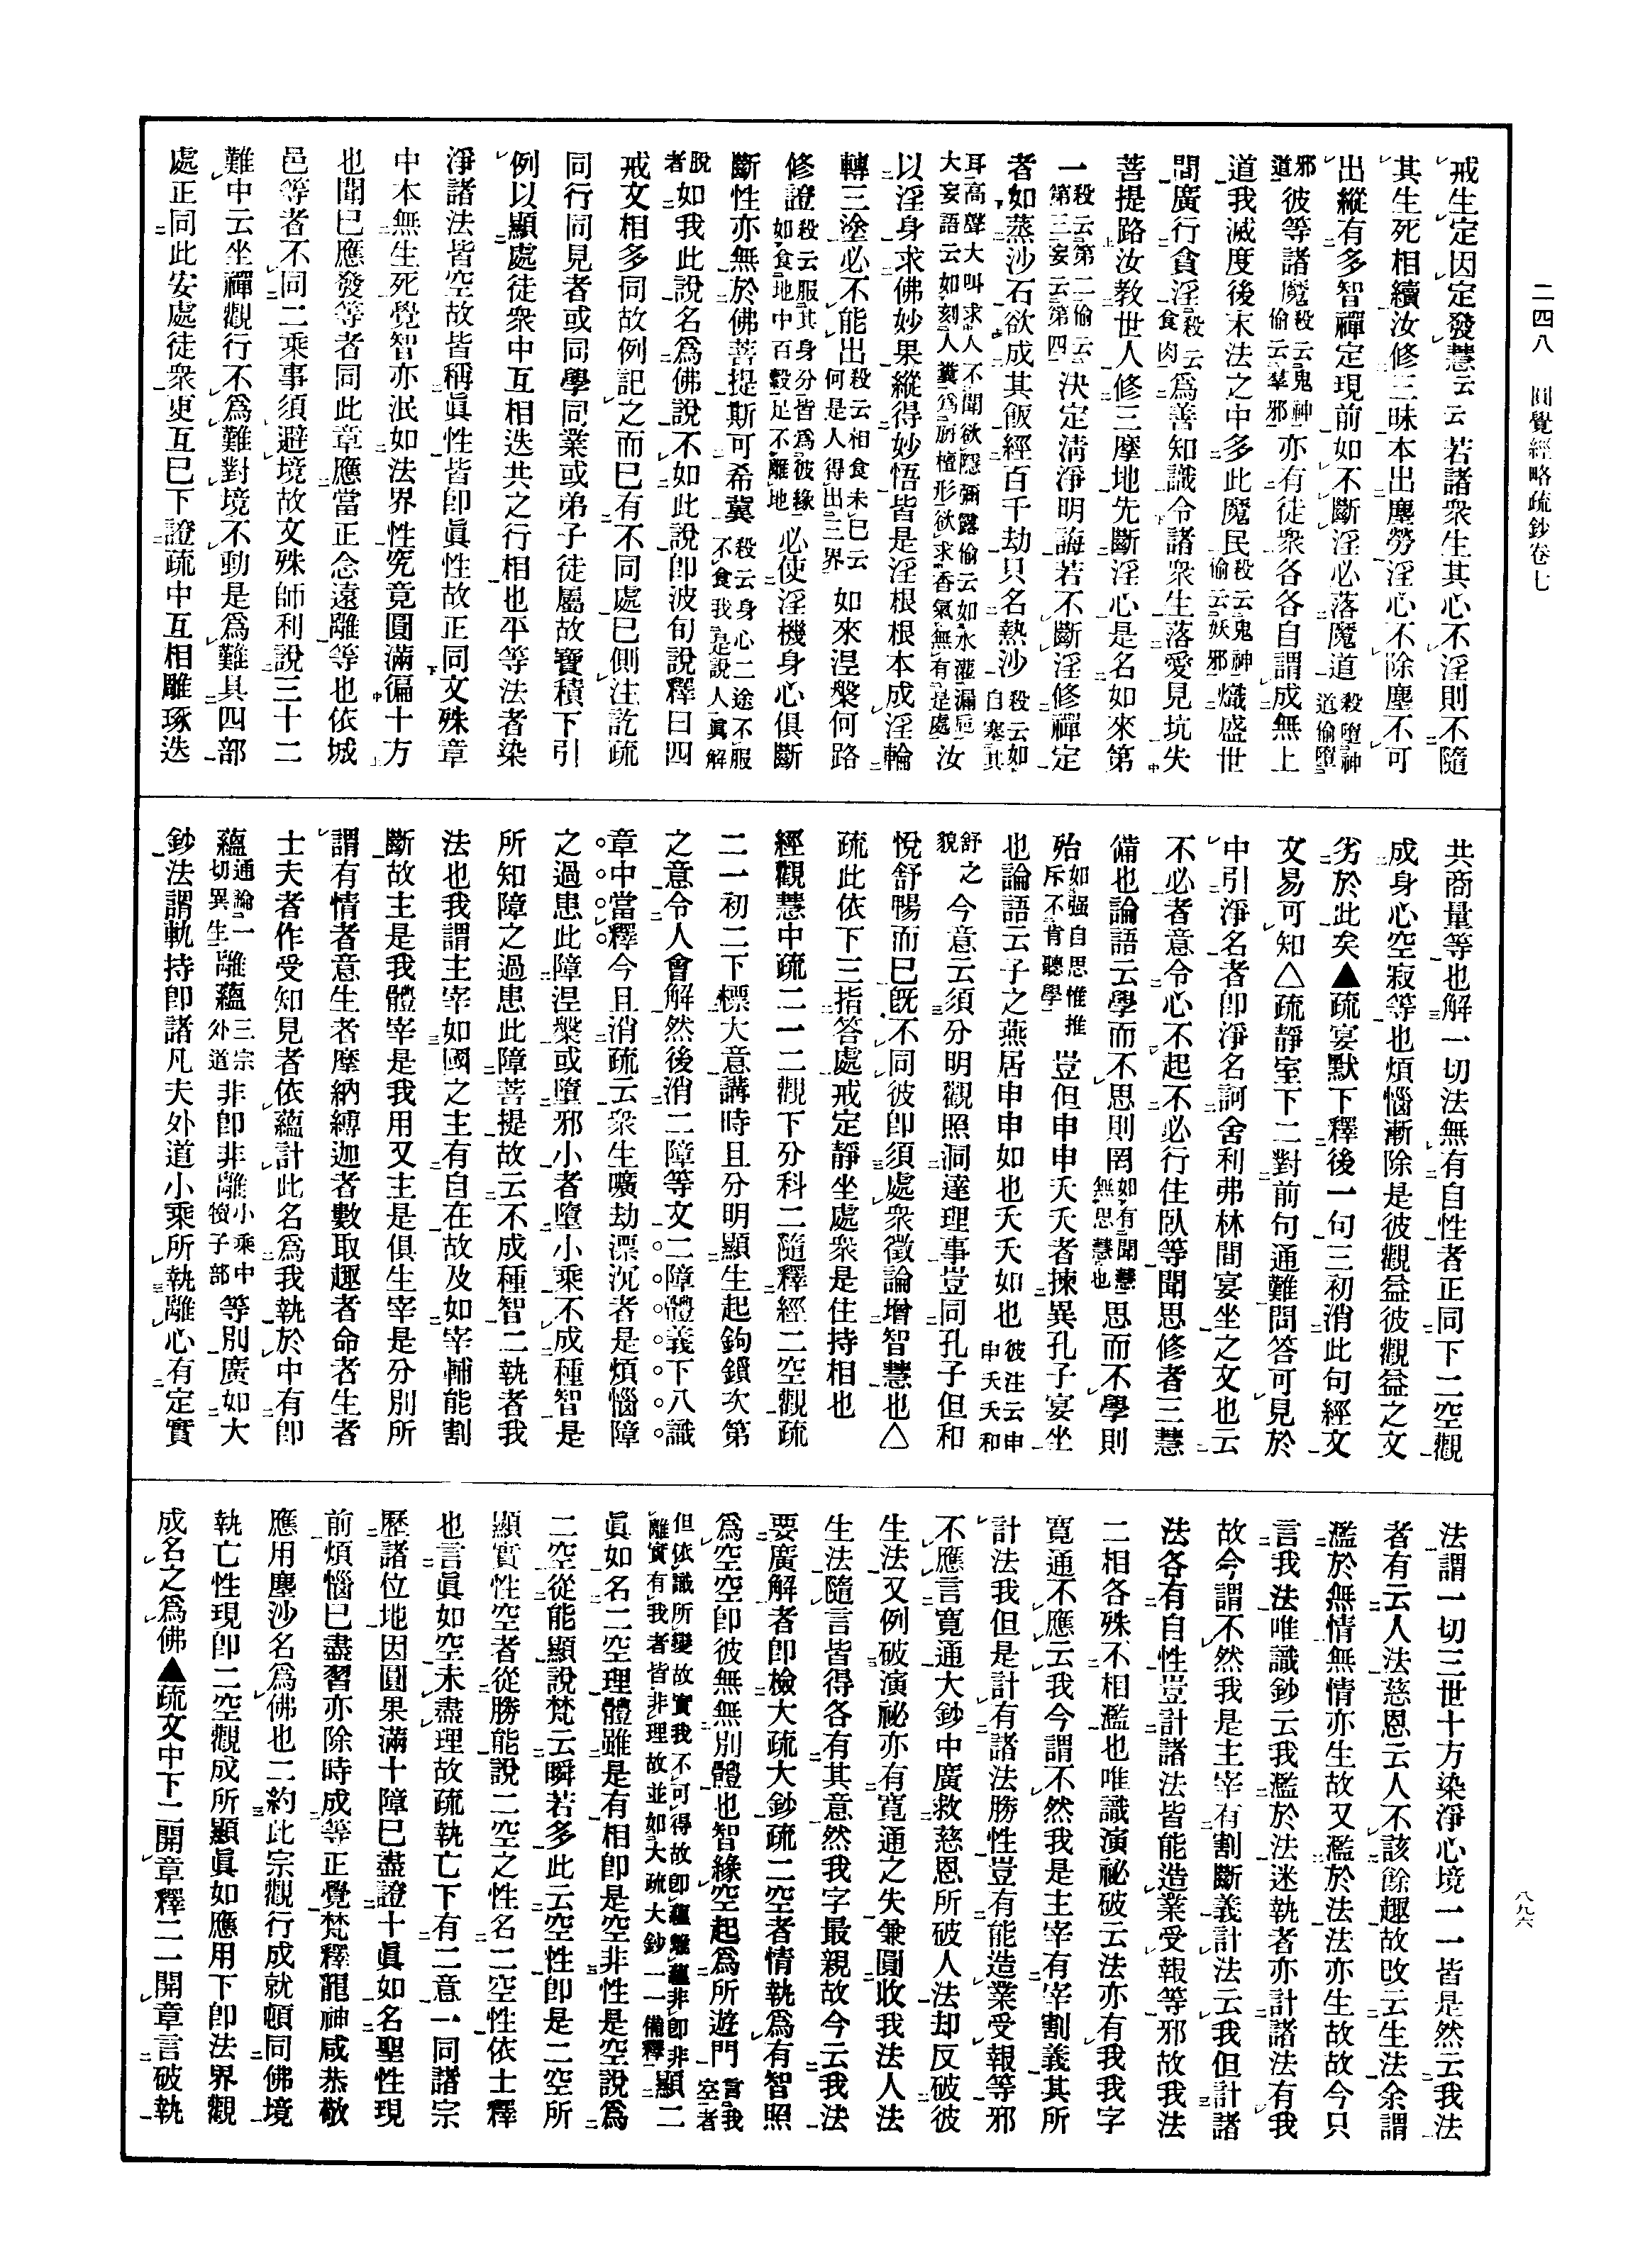 二四八　圓覺經略疏鈔卷七
戒生定因定發慧云云若諸衆生其心不淫則不隨
其生死相續汝修三昧本出塵勞淫心不除塵不可
出縱有多智禪定現前如不斷淫必落魔道殺墮神道偷墮
邪道彼等諸魔殺云鬼神偷云羣邪亦有徒衆各各自謂成無上
道我滅度後末法之中多此魔民殺云鬼神偷云妖邪熾盛世
間廣行貪淫殺云食肉爲善知識令諸衆生落愛見坑失
菩提路汝教世人修三摩地先斷淫心是名如來第
一殺云第二偷云第三妄云第四決定淸淨明誨若不斷淫修禪定
者如蒸沙石欲成其飯經百千劫只名熱沙殺云如自塞其
耳高聲大叫求人不聞欲隱彌露偷云如水灌漏巵大妄語云如刻人糞爲旃檀形欲求香氣無有是處汝
以淫身求佛妙果縱得妙悟皆是淫根根本成淫輪
轉三塗必不能出殺云相食未已云何是人得出三界如來涅槃何路
修證殺云服其身分皆爲彼緣如食地中百穀足不離地必使淫機身心俱斷
斷性亦無於佛菩提斯可希冀殺云身心二途不服不食我是說人眞解
脫者如我此說名爲佛說不如此說卽波旬說釋曰四
戒文相多同故例記之而已有不同處已側注訖疏
同行同見者或同學同業或弟子徒屬故寶積下引
例以顯處徒衆中互相迭共之行相也平等法者染
淨諸法皆空故皆稱眞性皆卽眞性故正同文殊章
中本無生死覺智亦泯如法界性究竟圓滿徧十方
也聞已應發等者同此章應當正念遠離等也依城
邑等者不同二乘事須避境故文殊師利說三十二
難中云坐禪觀行不爲難對境不動是爲難具四部
處正同此安處徒衆更互已下證疏中互相雕琢迭
共商量等也解一切法無有自性者正同下二空觀
成身心空寂等也煩惱漸除是彼觀益彼觀益之文
劣於此矣▲疏宴默下釋後一句三初消此句經文
文易可知△疏靜室下二對前句通難問答可見於
中引淨名者卽淨名訶舍利弗林間宴坐之文也云
不必者意令心不起不必行住臥等聞思修者三慧
備也論語云學而不思則罔如有聞慧無思慧也思而不學則
殆如强自思惟推斥不肯聽學豈但申申夭夭者揀異孔子宴坐
也論語云子之燕居申申如也夭夭如也彼注云申申夭夭和
舒之貌今意云須分明觀照洞達理事豈同孔子但和
悅舒暢而已旣不同彼卽須處衆徵論增智慧也△
疏此依下三指答處戒定靜坐處衆是住持相也
經觀慧中疏二一二觀下分科二隨釋經二空觀疏
二一初二下標大意講時且分明顯生起鉤鎖次第
之意令人會解然後消二障等文二障體義下八識
章中當釋今且消疏云衆生曠劫漂沉者是煩惱障
之過患此障涅槃或墮邪小者墮小乘不成種智是
所知障之過患此障菩提故云不成種智二執者我
法也我謂主宰如國之主有自在故及如宰輔能割
斷故主是我體宰是我用又主是俱生宰是分別所
謂有情者意生者摩納縛迦者數取趣者命者生者
士夫者作受知見者依蘊計此名爲我執於中有卽
蘊通論一切異生離蘊三宗外道非卽非離小乘中犢子部等別廣如大
鈔法謂軌持卽諸凡夫外道小乘所執離心有定實
法謂一切三世十方染淨心境一一皆是然云我法
者有云人法慈恩云人不該餘趣故改云生法余謂
濫於無情無情亦生故又濫於法法亦生故故今只
言我法唯識鈔云我濫於法迷執者亦計諸法有我
故今謂不然我是主宰有割斷義計法云我但計諸
法各有自性豈計諸法皆能造業受報等邪故我法
二相各殊不相濫也唯識演祕破云法亦有我我字
寬通不應云我今謂不然我是主宰有宰割義其所
計法我但是計有諸法勝性豈有能造業受報等邪
不應言寬通大鈔中廣救慈恩所破人法却反破彼
生法又例破演祕亦有寬通之失兼圓收我法人法
生法隨言皆得各有其意然我字最親故今云我法
要廣解者卽檢大疏大鈔疏二空者情執爲有智照
爲空空卽彼無無別體也智緣空起爲所遊門言我空者
但依識所變故實我不可得故卽蘊離蘊非卽非離實有我者皆非理故並如大疏大鈔一一備釋顯二
眞如名二空理體雖是有相卽是空非性是空說爲
二空從能顯說梵云瞬若多此云空性卽是二空所
顯實性空者從勝能說二空之性名二空性依士釋
也言眞如空未盡理故疏執亡下有二意一同諸宗
歷諸位地因圓果滿十障已盡證十眞如名聖性現
前煩惱已盡習亦除時成等正覺梵釋龍神咸恭敬
應用塵沙名爲佛也二約此宗觀行成就頓同佛境
執亡性現卽二空觀成所顯眞如應用下卽法界觀
成名之爲佛▲疏文中下二開章釋二一開章言破執
八九六